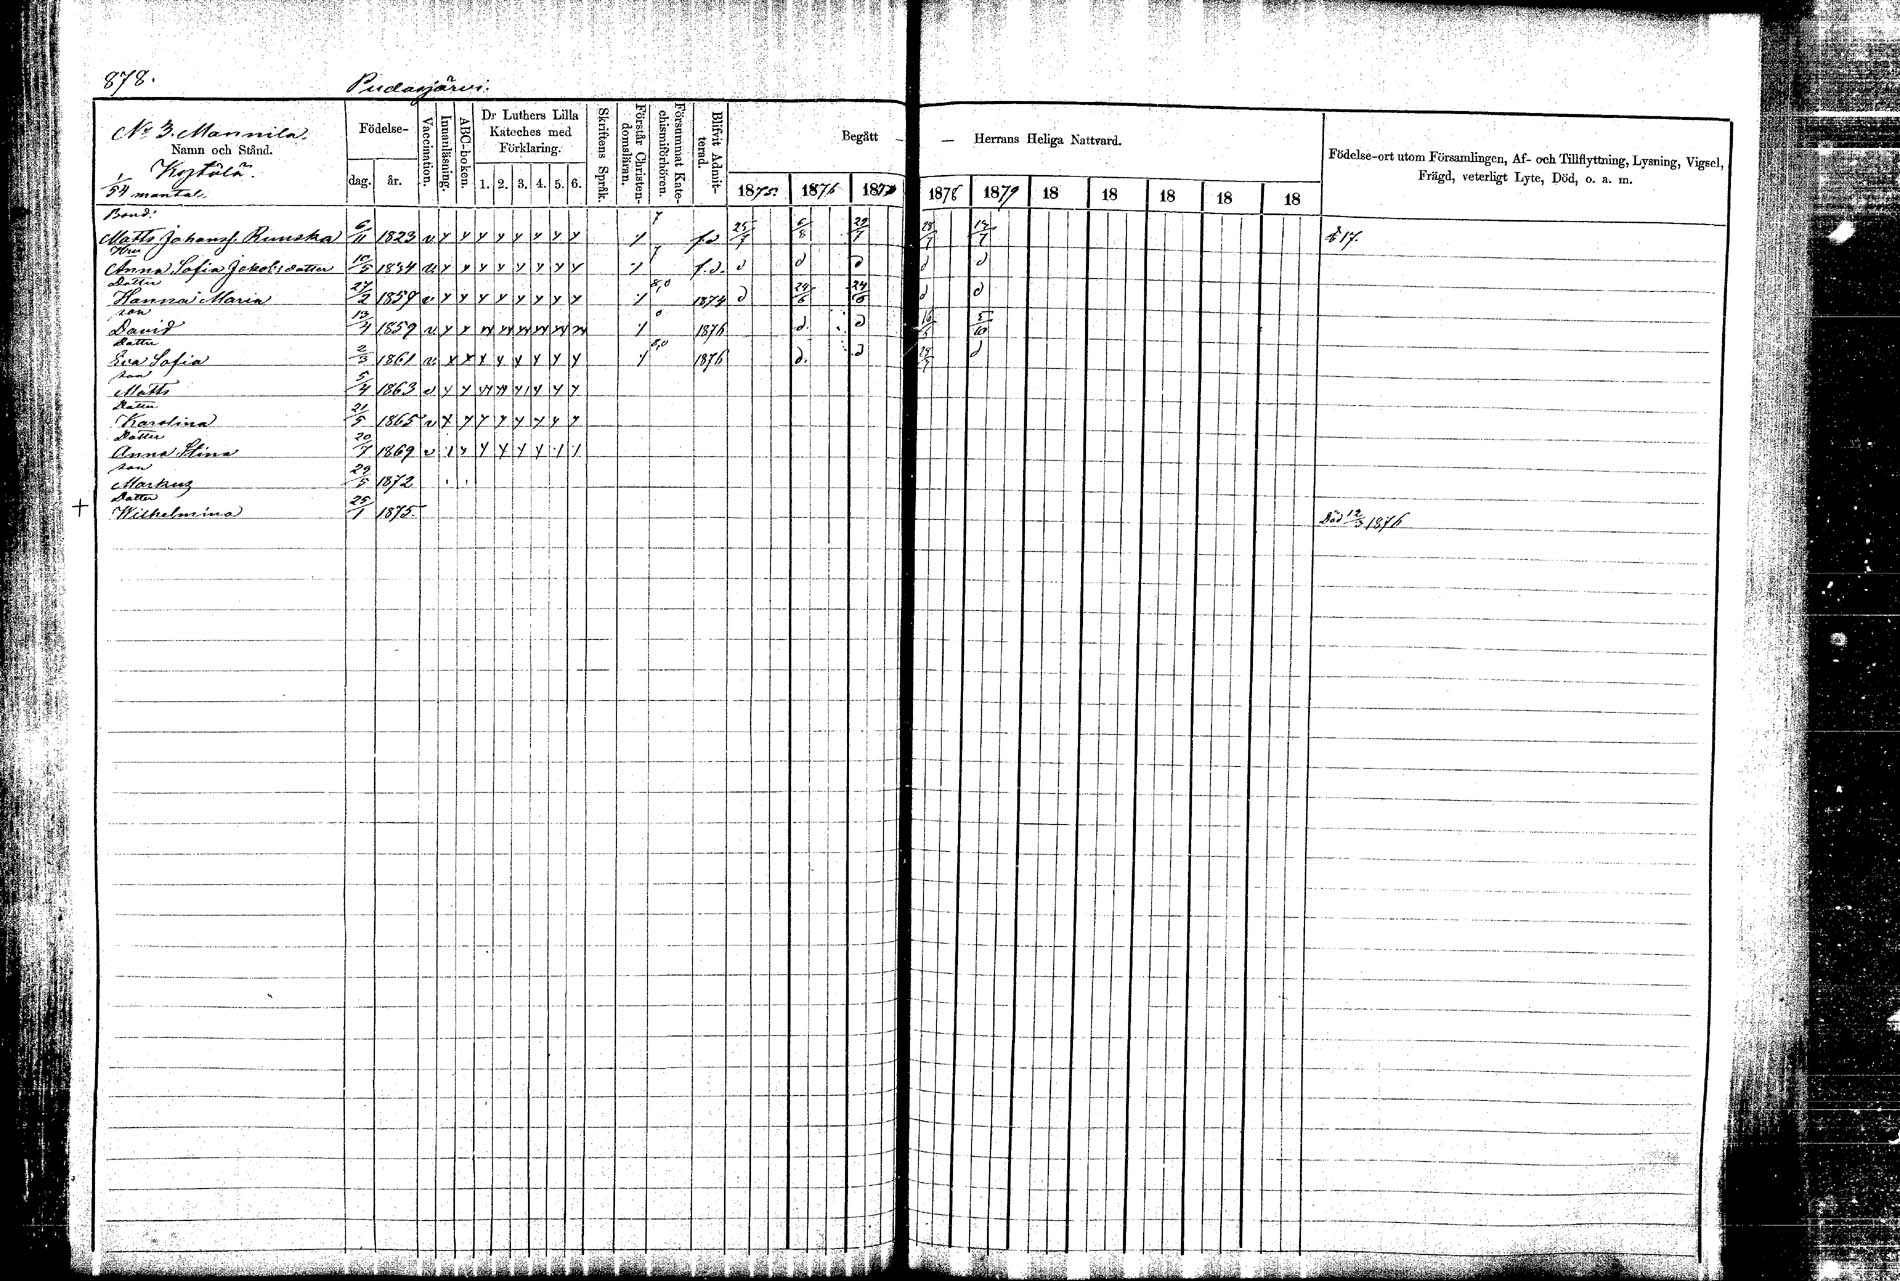 878. Pudasjärvi.
No 3. Mannila.
Namn och Stånd.
1/54 mantal.
Födelse-
dag. år.
Vaccination.
Innanläsning.
ABC-boken.
Dr Luthers Lilla
Kateches med
Förklaring.
1. 2. 3. 4. 5. 6.
Skriftens Språk.
Förstår Christen-
domsläran.
Försummat Kate-
chismiförhören.
Blifvit Admit-
terad.
Begått — — Herrans Heliga Nattvard.
1875. 1876 1877 1878 1879 18 18 18 18 18
Födelse-ort utom Församlingen, Af- och Tillflyttning, Lysning, Vigsel,
Frägd, veterligt Lyte, Död, o. a. m.
Bond.
Matts Johansf. Runska 6/11 1823 v y y y y y y y y 25/7 6/8 29/7 28/7
Hru
Anna Sofia Jakobsdatter 10/5 1834 v y y y y y y y y f.d. d d d d d
Datter
Hanna Maria 27/2 1857 v y y y y y y y y 1874 d 24/6 24/6 d d
son
David 13/4 1859 v 1876 d. d
Datter
Eva Sofia 2/3 1861 v 1876 d. d d
son
Matts 5/4 1863 v
Datter
Karolina 21/5 1865 v
Datter
Anna Stina 20/7 1869 v
son
Markus 29/5 1872
Datter
+ Wilhelmina 25/1 1875. Död 12/3 1876